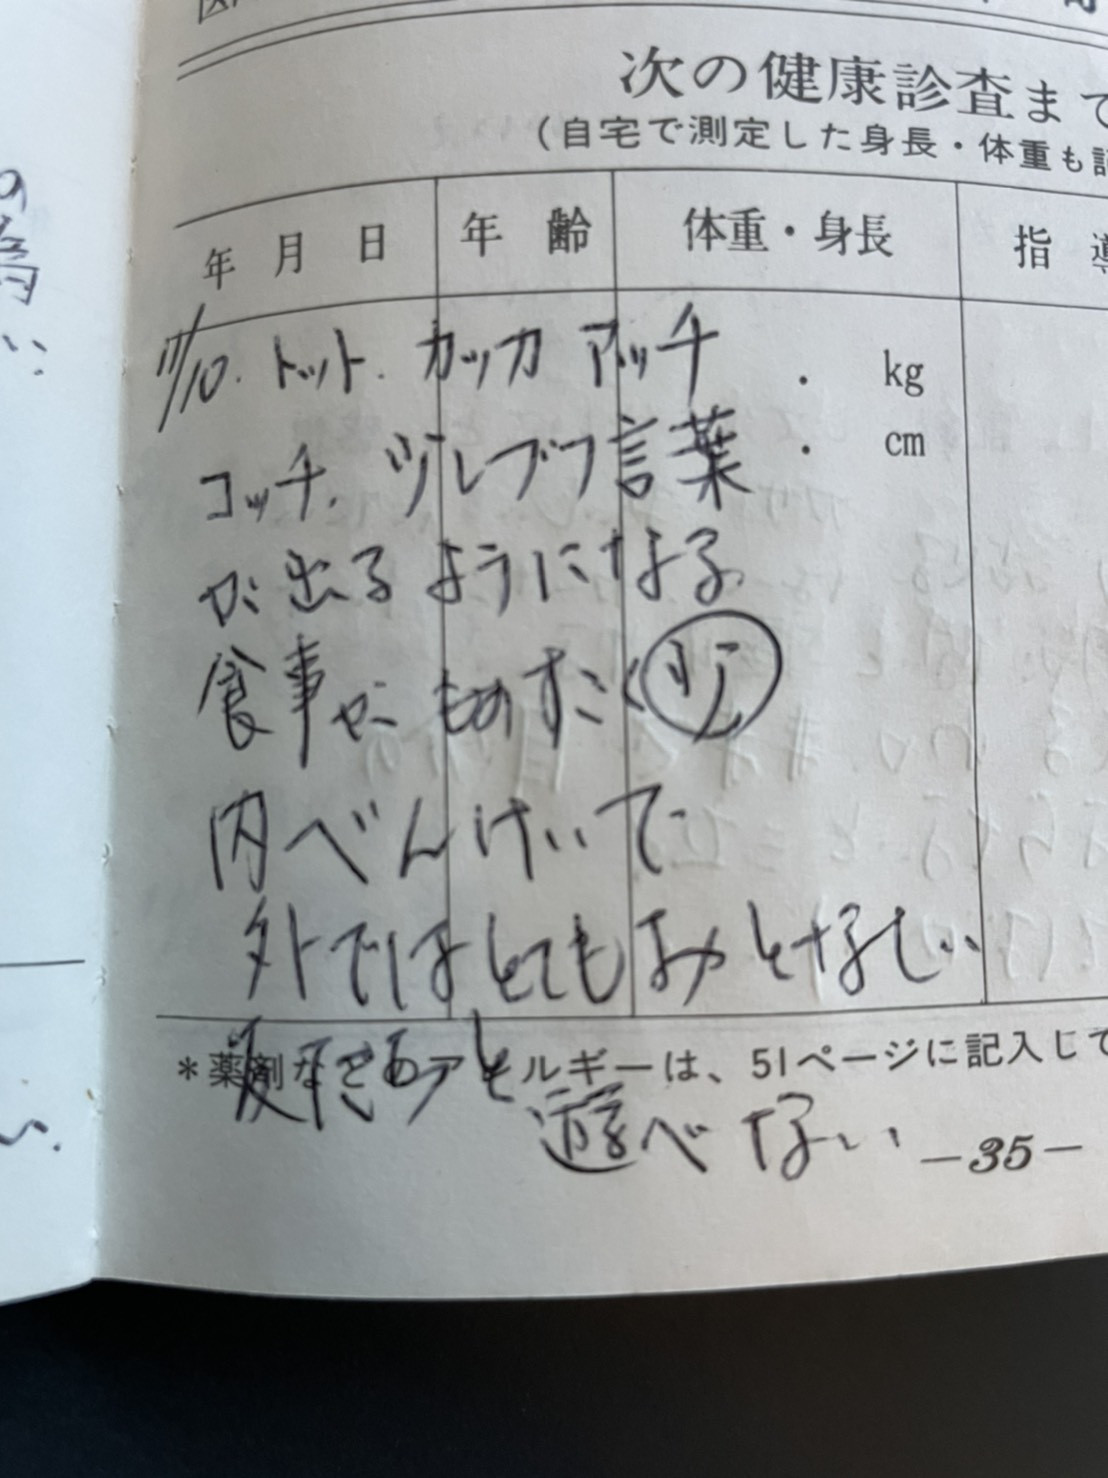 次の健康診査まで
(自宅で測定した身長・体重も
年月日 年齢 体重・身長 指導
11/10. トット. カッカ アッチ . kg
コッチ. 言葉 . cm
が出るようになる
食事がものすごく
内べんけいで
外ではとてもおとなしい
*薬剤 ルギーは、51ページに記入して
遊べない
—35—